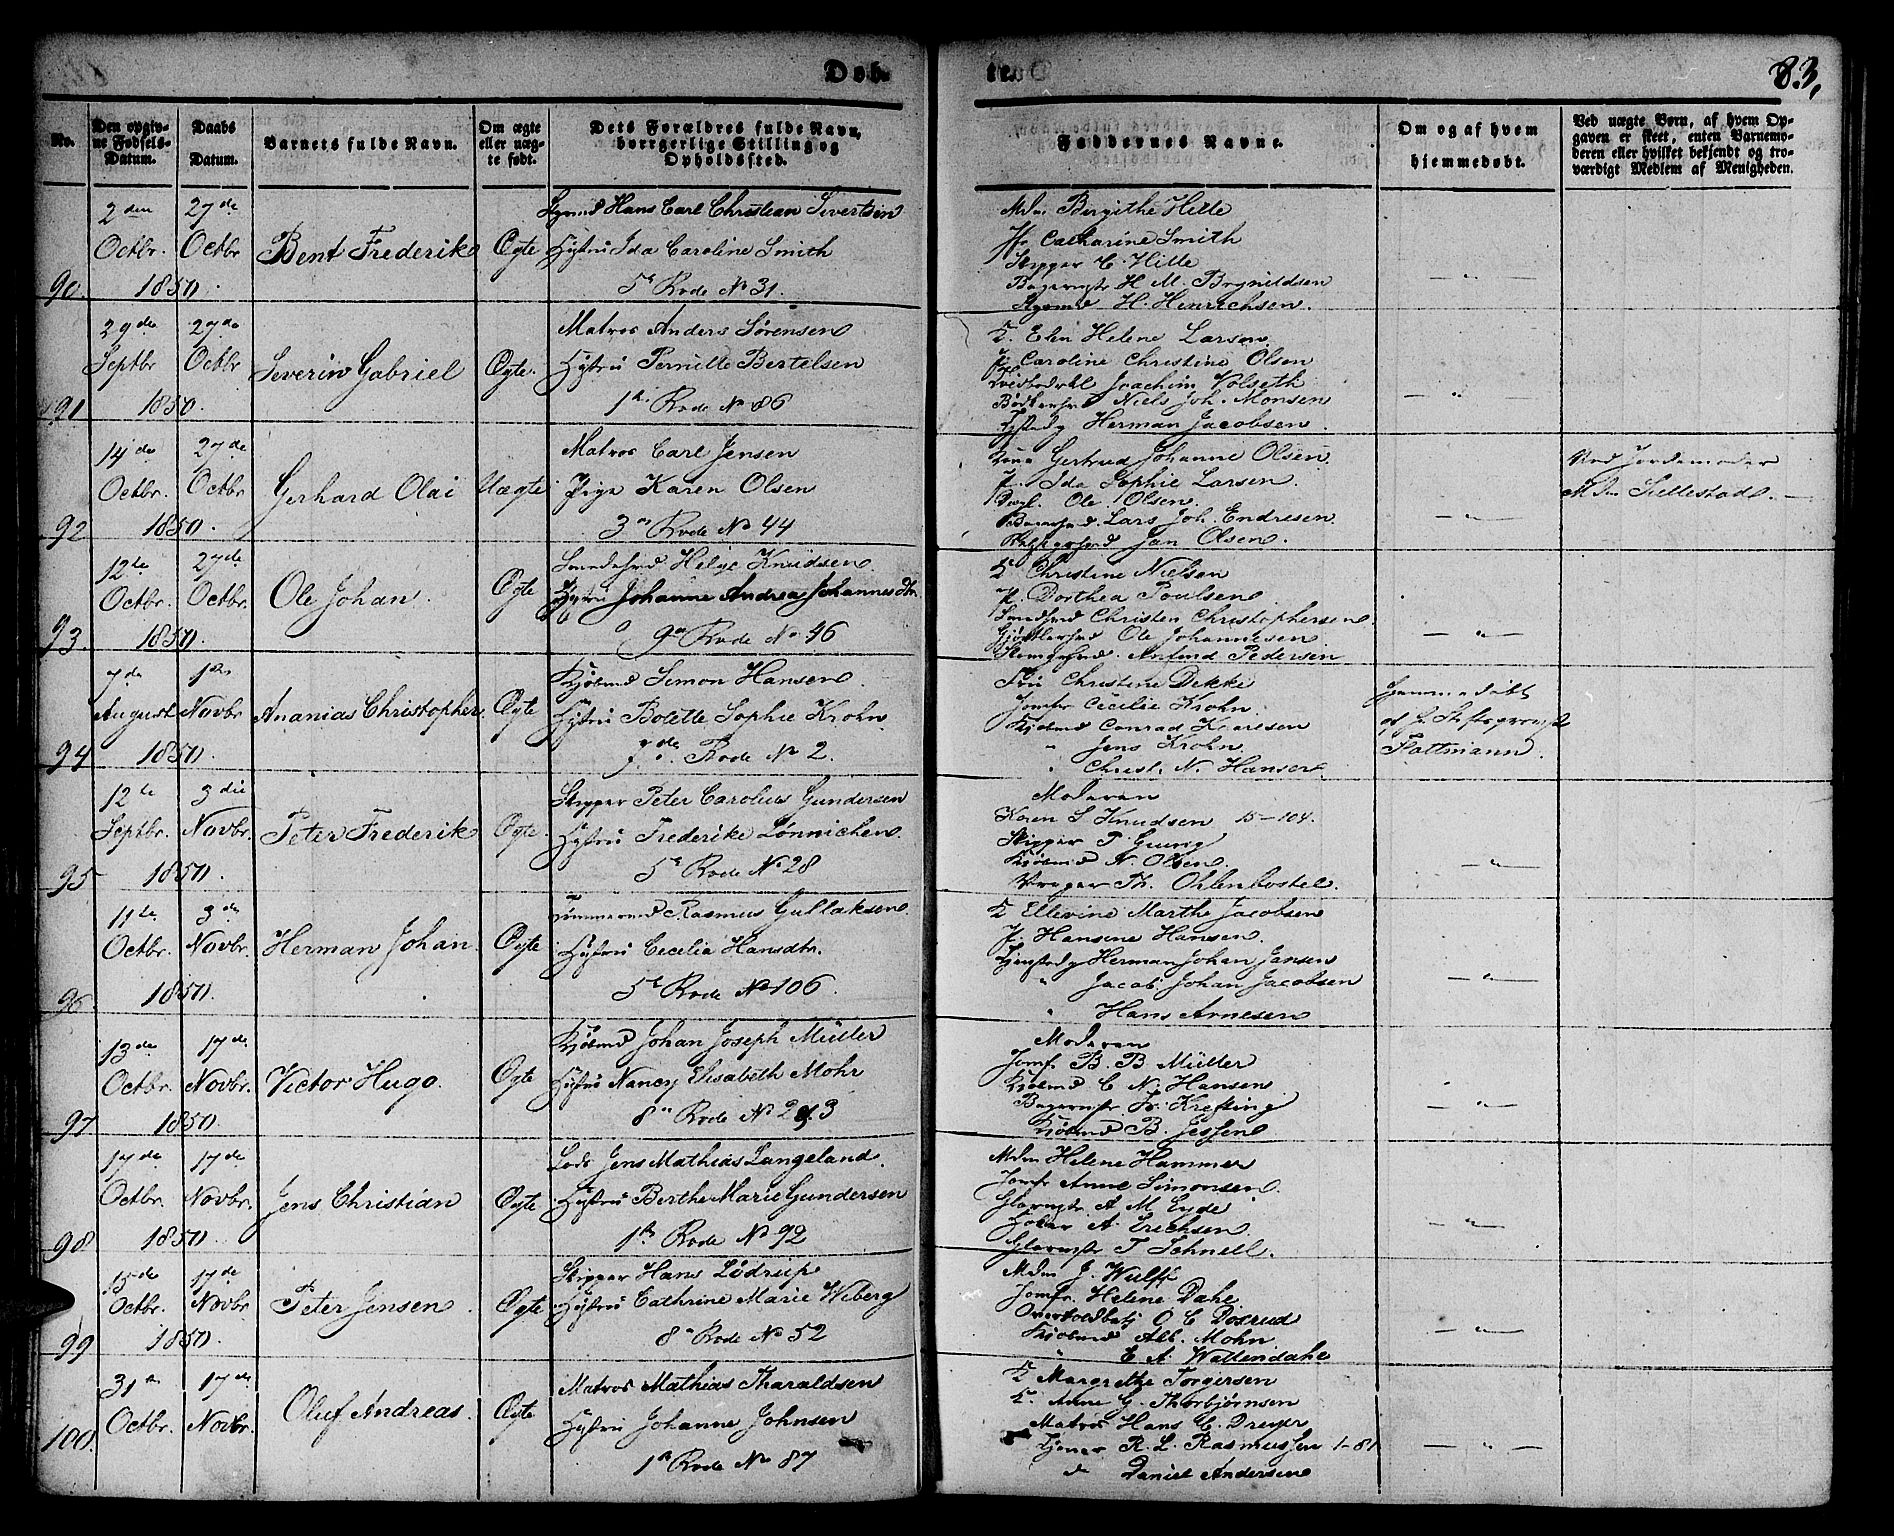 Døb-
te.
83,
No.
Den opgiv-
ne Fødsels-
Datum.
Daabs
Datum.
Barnets fulde Navn.
Om ægte
eller uæg-
te født.
Dets Forældres fulde Navn,
borrgerlige Stilling og
Opholdssted.
Faddernes Navne.
Om og af hvem
hjemmedøbt.
Ved uægte Børn, af hvem Op-
gaven er skeet, enten Barnemo-
deren eller hvilket bekjendt og tro-
værdigt Medlem af Menigheden.
90.
2den Octbr. 1850.
27de Octbr
Bent Frederik
Ægte
Hans Carl Christian Sivertsen
Hustru Ida Caroline Smith
5te Rode No 31.
Mdm Birgithe Hille
Jfr Catharine Smith
Skipper C. Hille
Bagermstr H. M. Brynildsen
H. Hinrichsen
91
29de Septbr 1850.
27de Octbr
Severin Gabriel
Ægte.
Matros Anders Sørensen
Hustru Pernille Bertelsen
1ste Rode No 86
K. Elen Helene Larsen
P. Caroline Christine Olsen
Joachim Volseth
Niels Joh. Monsen
Herman Jacobsen
92
14de Octbr. 1850.
27de Octbr
Gerhard Olai
Uægte
Matros Carl Jensen
Pige Karen Olsen
3die Rode No 44
Kone Gertrud Johanne Olsen
P. Ida Sophie Larsen.
Ole Olsen
Lars Joh. Endresen
Jan Olsen.
Ved Jordemoder
Mdm Sellestad.
93
12te Octbr. 1850.
27de Octbr.
Ole Johan.
Ægte
Helge Knudsen
Hustru Johanne Andrea Johannesdtr.
9de Rode No 46
K Christine Nielsen
P. Dorthea Poulsen
Christen Christophersen
Ole Johannesen
Amund Pedersen
94
7de August 1850
1ste Novbr
Ananias Christopher.
Ægte
Kjøbmd Simon Hansen.
Hustru Bolette Sophie Krohn
7de Rode No 2.
Fru Christine Dekke
Jomfr Cecilie Krohn
Kjøbmd Conrad
" Jens Krohn
" Christ. N. Hansen
Hjemmedøbt
af H. Stiftsprovst
95
12te Septbr. 1850.
3die Novbr.
Peter Frederik
Ægte.
Skipper Peter Carolius Gundersen
Hustru Frederike Lønnichen.
5te Rode No 28
Moderen
Karen S Knudsen 15-104.
Skipper P
Kjøbmd N. Olsen
Th. Ohlenbostel.
96
11te Octbr. 1850.
3die Novbr.
Herman Johan
Ægte
Tømmermd Rasmus Gullaksen
Hustru Cecilia Hansdtr.
5te Rode No 106.
K Ellevine Marthe Jacobsen
P. Hansine Hansen.
Herman Johan Jansen
" Jacob Johan Jacobsen
" Hans Arnesen
97
13de Octbr. 1850.
17de Novbr.
Victor Hugo.
Ægte
Kjøbmd Johan Joseph Müller
Hustru Nancy Elisabeth Mohr
Moderen
Jomfr B. B Müller
Kjøbmd C. N. Hansen
Bagermstr Fr. Krefting
Kjøbmd B. Jessen
98
17de Octbr. 1850.
17de Novbr.
Jens Christian
Ægte
Lods Jens Mathias Langeland.
Hustru Berthe Marie Gundersen
1ste Rode No 92
Mdm Helene Hammer
Jomfr Anne Simonsen.
Glarmstr A. M Eyde
A. Erichsen
Glarmstr T Schnell.
99
15de Octbr. 1850.
17de Novbr
Peter Jensen.
Ægte
Skipper Hans Lødrup
Hustru Cathrine Marie Wiberg
8de Rode No 52
Mdm J. Wulff
Jomfr. Helene Dahl
O C Døsrud
Kjøbmd Alb. Mohn
" E A Wallendahl
100
31te Octbr.
17de Novbr.
Oluf Andreas.
Ægte
Matros Mathias Tharaldsen
Hustru Johanne Johnsen
1ste Rode No 87
K Margrethe Torgersen
K. Anne G. Thorbjørnsen
Matros Hans C. Dreyer
Tjener R. L. Rasmussen 1-81
do Daniel Andersen